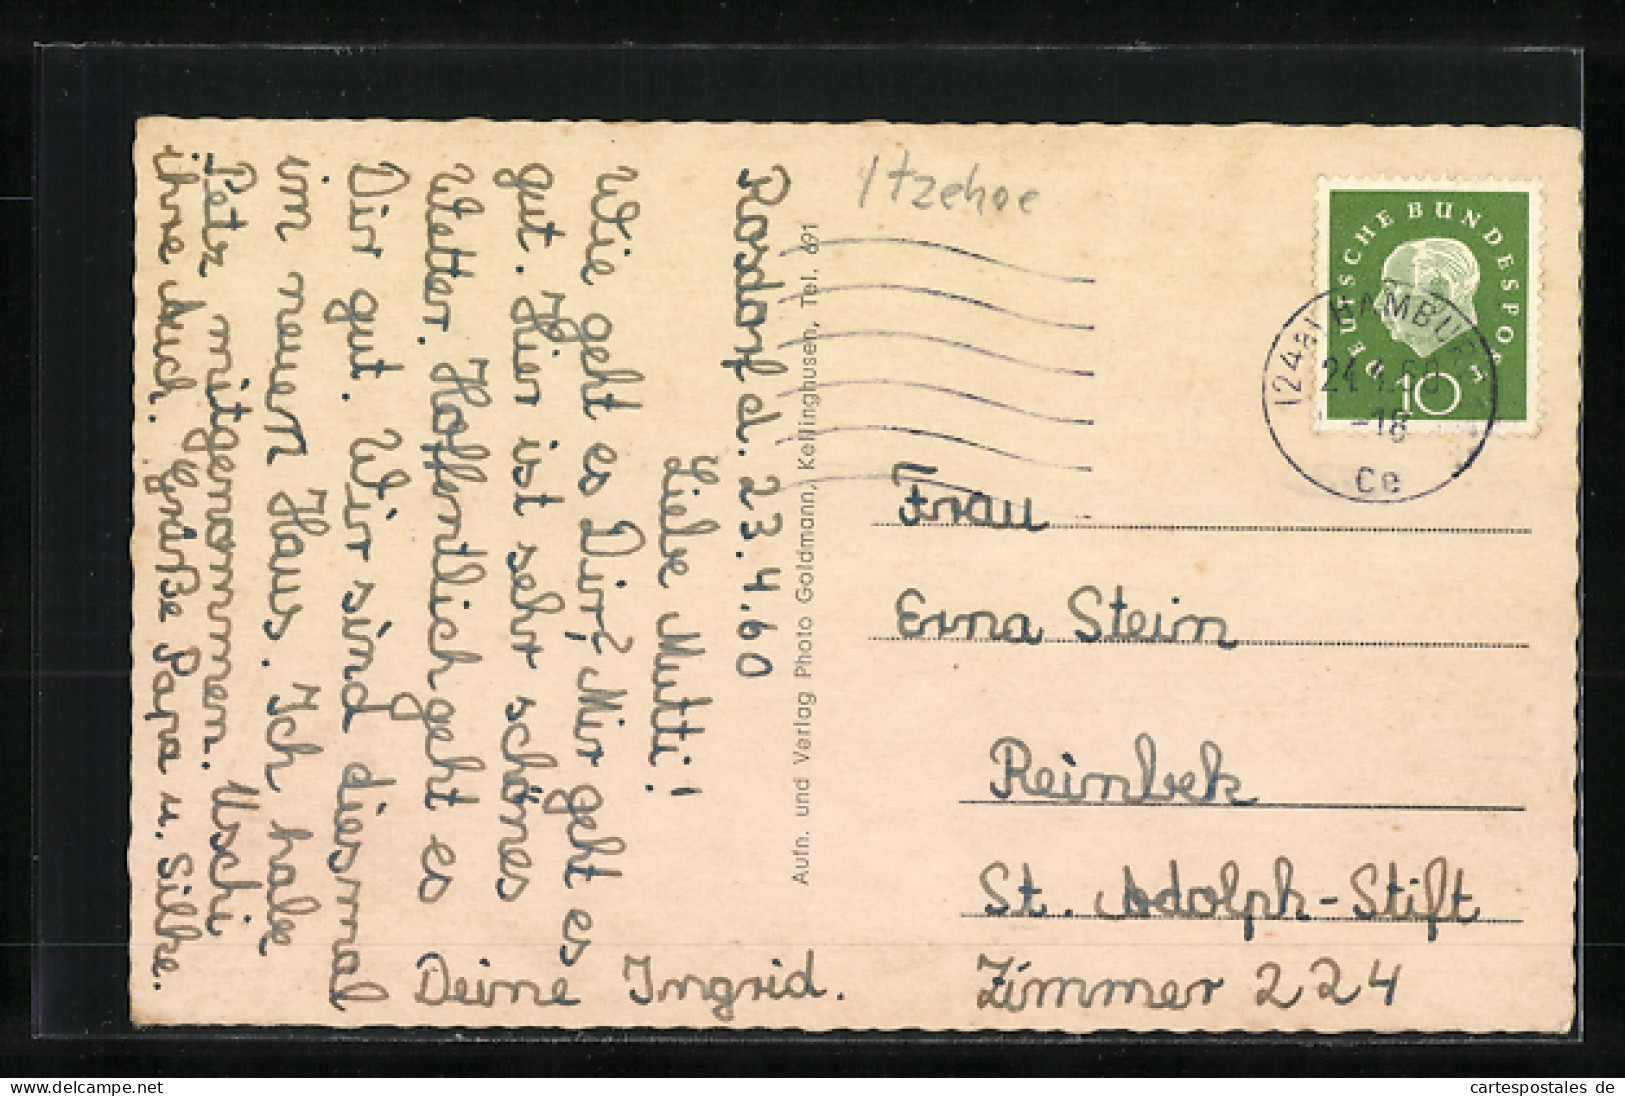 Rosdorf d. 23.4.60
Liebe Mutti!
Wie geht es Dir? Mir geht es
gut. Hier ist sehr schönes
Wetter. Hoffentlich geht es
Dir gut. Wir sind diesmal
im neuen Haus. Ich habe
Petz mitgenommen. Uschi
ihre Auch. Grüße Papa u. Silke.
Deine Ingrid.
Aufn. und Verlag Photo Goldmann, Kellinghusen, Tel. 691
Itzehoe
DEUTSCHE BUNDESPOST
10
(24a) HAMBURG
24.4.60
-18
ce
Frau
Erna Stein
Reinbek
St. Adolph-Stift
Zimmer 224
www.delcampe.net
cartespostales de